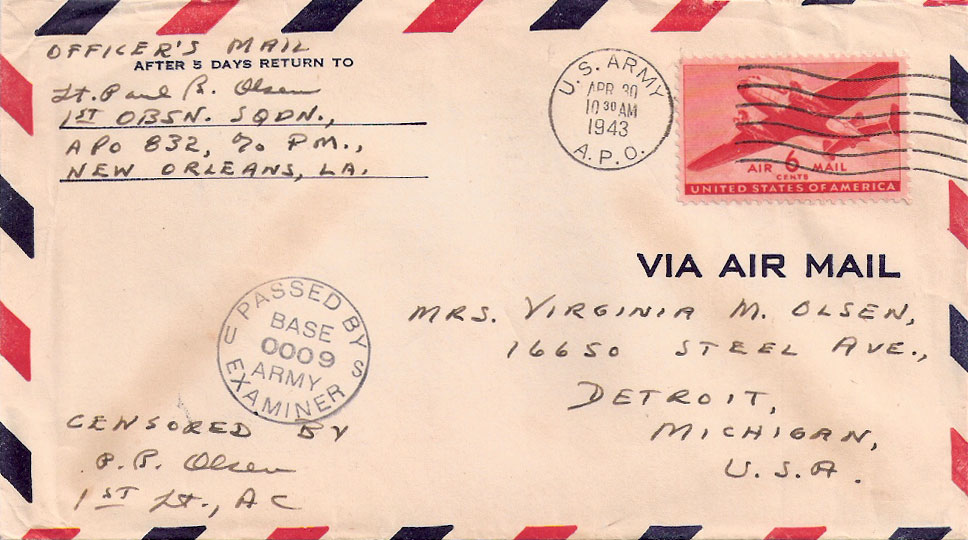 OFFICER'S MAIL
AFTER 5 DAYS RETURN TO
Lt. Paul R. Olsen
1ST OBSN. SQDN.,
APO 832, c/o P.M.,
NEW ORLEANS, LA.
U.S. ARMY
APR 30
10 30 AM
1943
A.P.O.
AIR 6 MAIL
CENTS
UNITED STATES OF AMERICA
VIA AIR MAIL
MRS. VIRGINIA M. OLSEN,
16650 STEEL AVE.,
DETROIT,
MICHIGAN,
U.S.A.
PASSED BY
BASE
0009
ARMY
U S
EXAMINER
CENSORED BY
P.R. Olsen
1ST Lt., AC